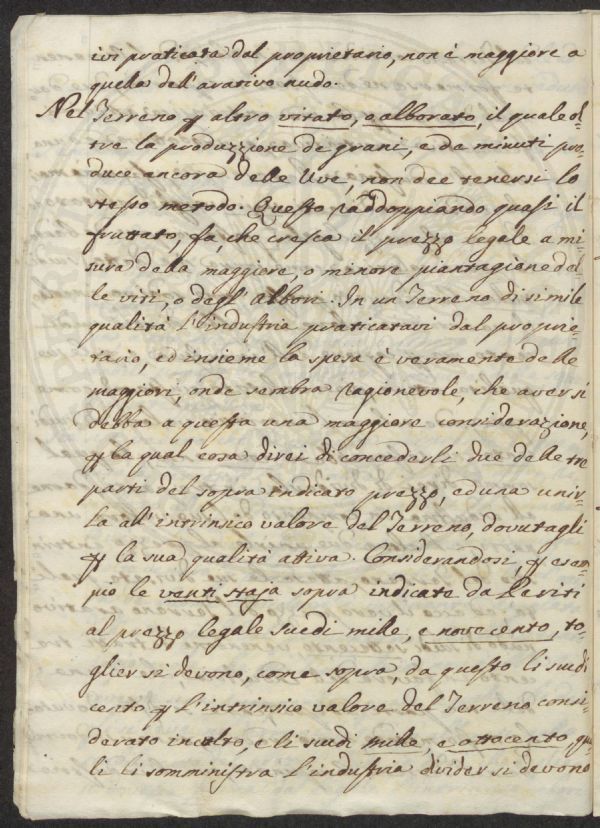 ivi praticata dal proprietario, non è maggiore a
quella dell'arativo nudo.
Nel Terreno ꝑ altro vitato, o alborato, il quale ol=
tre la produzzione de grani, e da minuti pro=
duce ancora delle Uve, non dee tenersi lo
stesso metodo. Questo raddoppiando quasi il
fruttato, fa, che cresca il prezzo legale a mi=
sura della maggiore, o minore piantagione del=
le viti, o degl'Albori. In un Terreno di simile
qualità l'industria praticatavi dal proprie=
tario, ed insieme la spesa è veramente delle
maggiori, onde sembra ragionevole, che aversi
debba a questa una maggiore considerazione,
ꝑ la qual cosa direi di concederli due delle tre
parti del sopra indicato prezzo, ed una unir=
la all'intrinsico valore del Terreno, dovutagli
ꝑ la sua qualità attiva. Considerandosi, ꝑ esem=
pio le venti staja sopra indicate da Reviti
al prezzo legale scudi mille, e novecento, to=
glier si devono, come sopra, da questo li scudi
cento ꝑ l'intrinsico valore del Terreno consi=
derato incolto, e li scudi mille, e ottocento qua=
li li somministra l'industria divider si devono